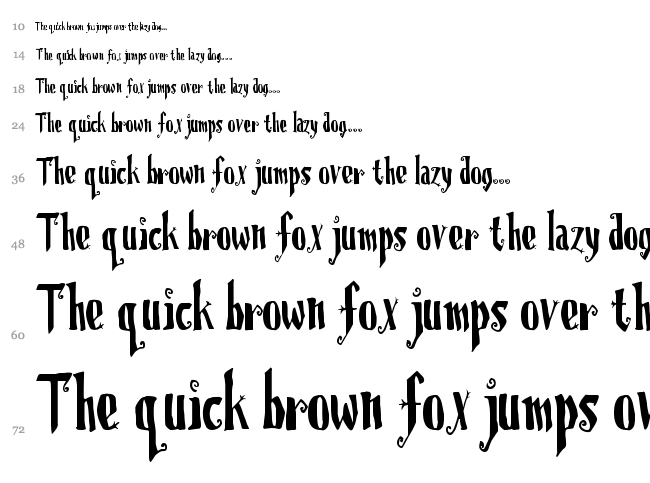 10 The quick brown fox jumps over the lazy dog...
14 The quick brown fox jumps over the lazy dog....
18 The quick brown fox jumps over the lazy dog....
24 The quick brown fox jumps over the lazy dog....
36 The quick brown fox jumps over the lazy dog....
48 The quick brown fox jumps over the lazy dog
60 The quick brown fox jumps over th
72 The quick brown fox jumps ov